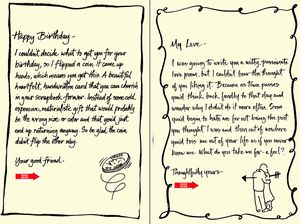 Happy Birthday -
I couldn't decide what to get you for your
birthday, so I flipped a coin. It came up
heads, which means you get this: A beautiful
heartfelt, handwritten card that you can cherish
in your scrapbook forever. Instead of some cold,
expensive, materialistic gift that would probably
be the wrong size or color and that you'd just
end up returning anyway. So be glad the coin
didn't flip the other way.
Your good friend -
My Love -
I was going to write you a witty, passionate
love poem, but I couldn't bear the thought
of you liking it. Because as time passes
you'd think back, fondly to that day and
wonder why I didn't do it more often. Soon
you'd begin to hate me for not being the poet
you thought I was and then out of nowhere
you'd toss me out of your life as if you never
knew me. What do you take me for - a fool?
Thoughtfully yours -